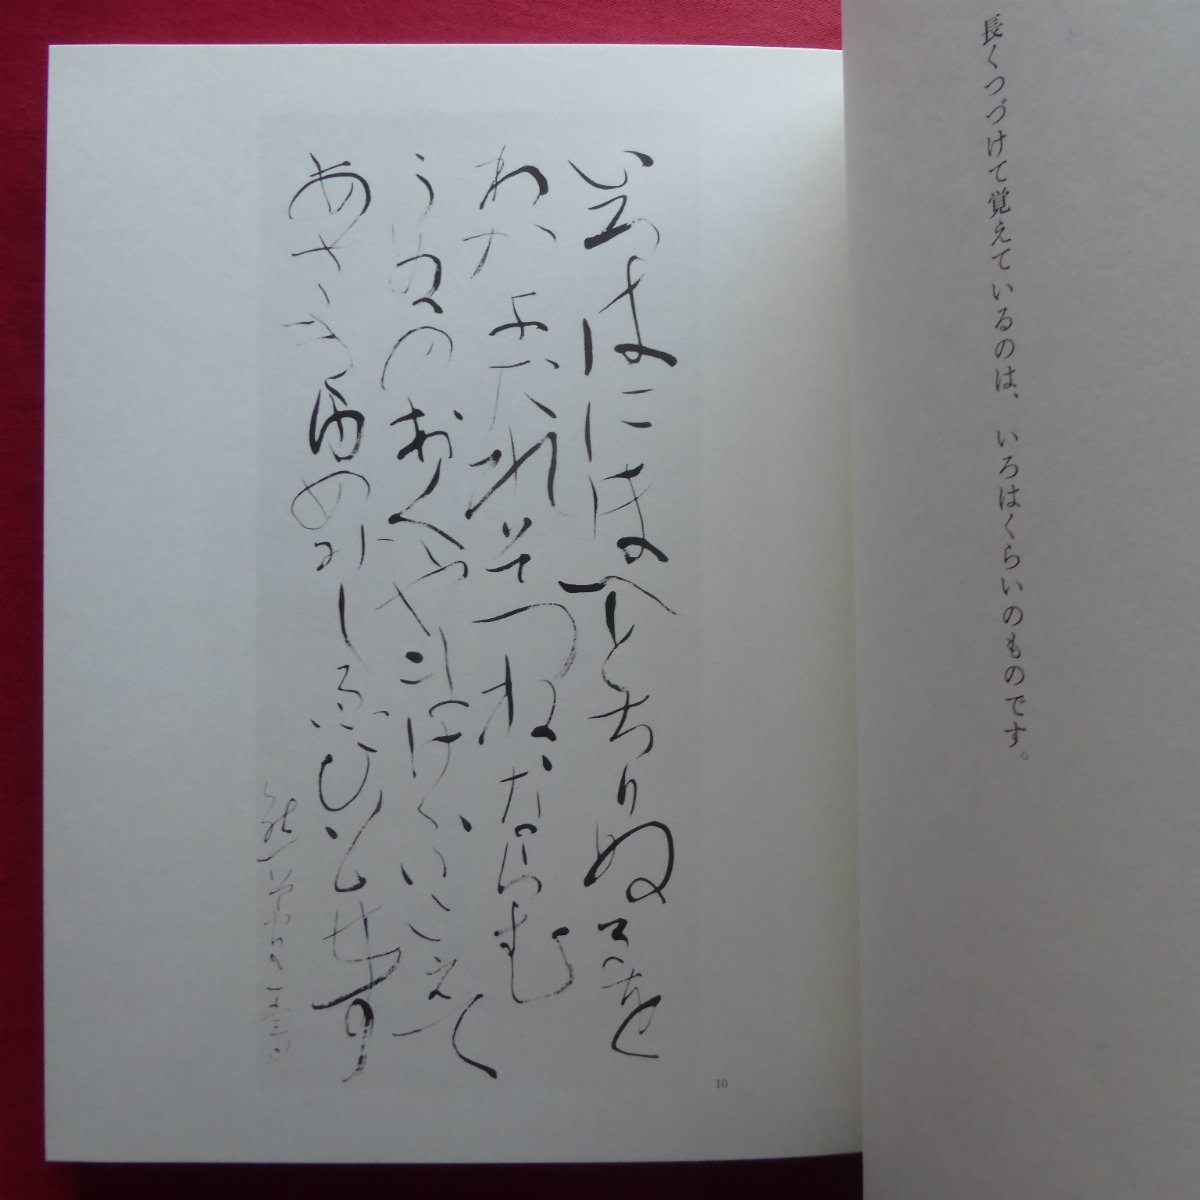 長くつづけて覚えているのは、いろはくらいのものです。
いろはにほへとちりぬるを
わかよたれそつねならむ
うゐのおくやまけふこえて
あさきゆめみしゑひもせす
10